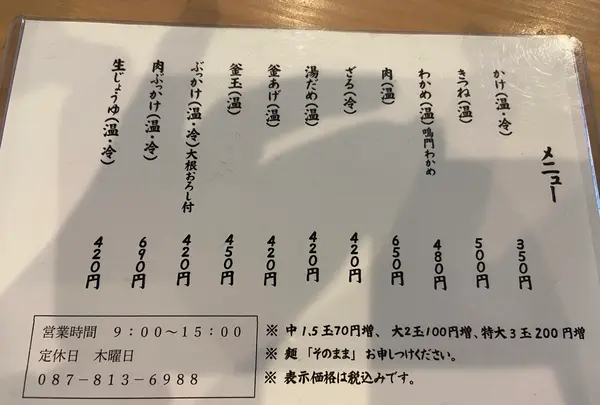 メニュー
かけ(温・冷) 350円
きつね(温) 500円
わかめ(温)鳴門わかめ 480円
肉(温) 650円
ざる(冷) 420円
湯だめ(温) 420円
釜あげ(温) 420円
釜玉(温) 450円
ぶっかけ(温・冷)大根おろし付 420円
肉ぶっかけ(温・冷) 690円
生じょうゆ(温・冷) 420円
※ 中1.5玉70円増、大2玉100円増、特大3玉200円増
※ 麺「そのまま」お申しつけください。
※ 表示価格は税込みです。
営業時間 9:00〜15:00
定休日 木曜日
087-813-6988